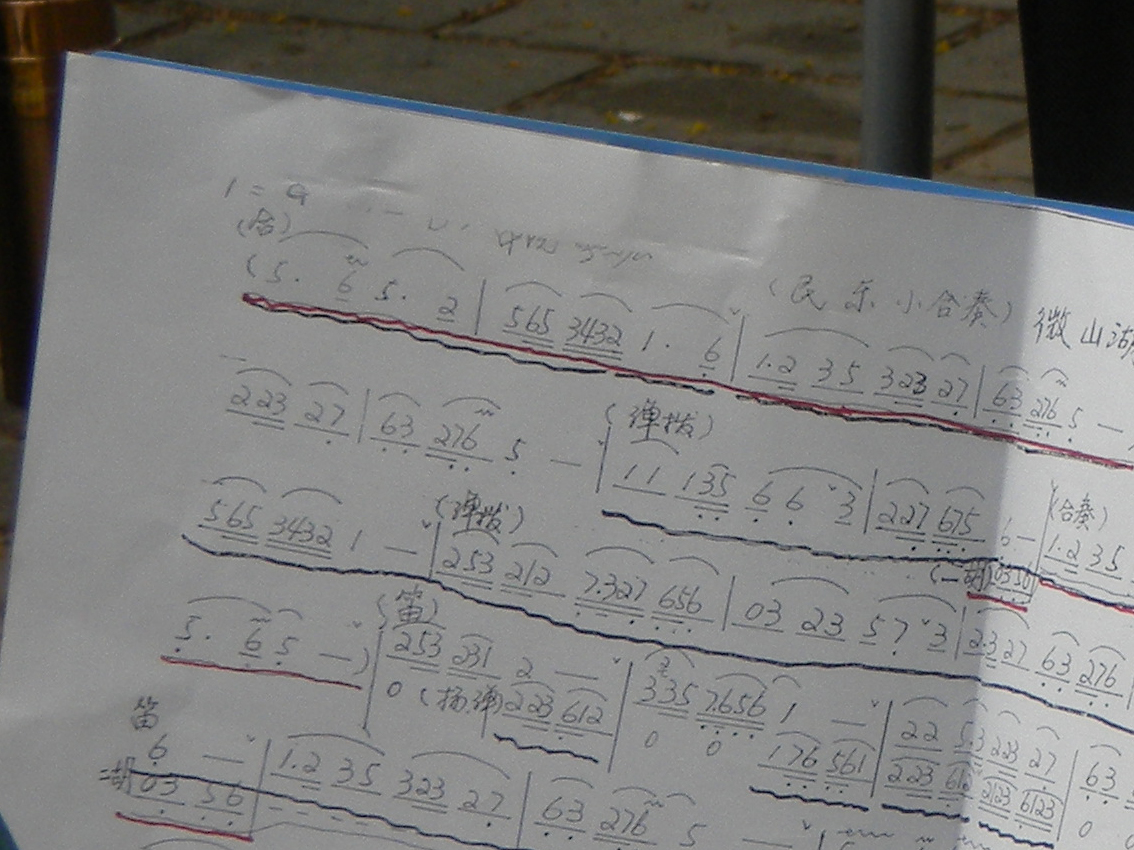 1 = G
(合)
(民乐小合奏) 微山湖
(5. 6 5. 2 | 565 3432 1. 6 | 1.2 35 323 27 | 63 276 5 —
223 27 | 63 276 5 — | (弹拨) 11 135 6 6 3 | 227 675 6 — | (合奏) 1.2 35
565 3432 1 — | (弹拨) 253 212 7.327 656 | 03 23 57 3 | 2.3 27 63 276
5. 6 5 —) | (笛) 253 231 2 — | 335 7.656 1 — | 22 53 223 27 | 63
0 (扬弹) 223 612 | 0 0 176 561 | 223 612 2123 6123 | 0 0
笛 6 — | 1.2 35 323 27 | 63 276 5 —
二胡 03 56